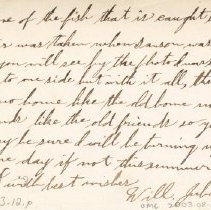 ne of the fish that is caught
was taken when season was
you will see by the photo
to one side but with it all, the
no home like the old home
nds like the old friends so y
may be sure I will be turning u
ne day if not this summer
with best wishes
Will
3-12.p
OMG 2003.08